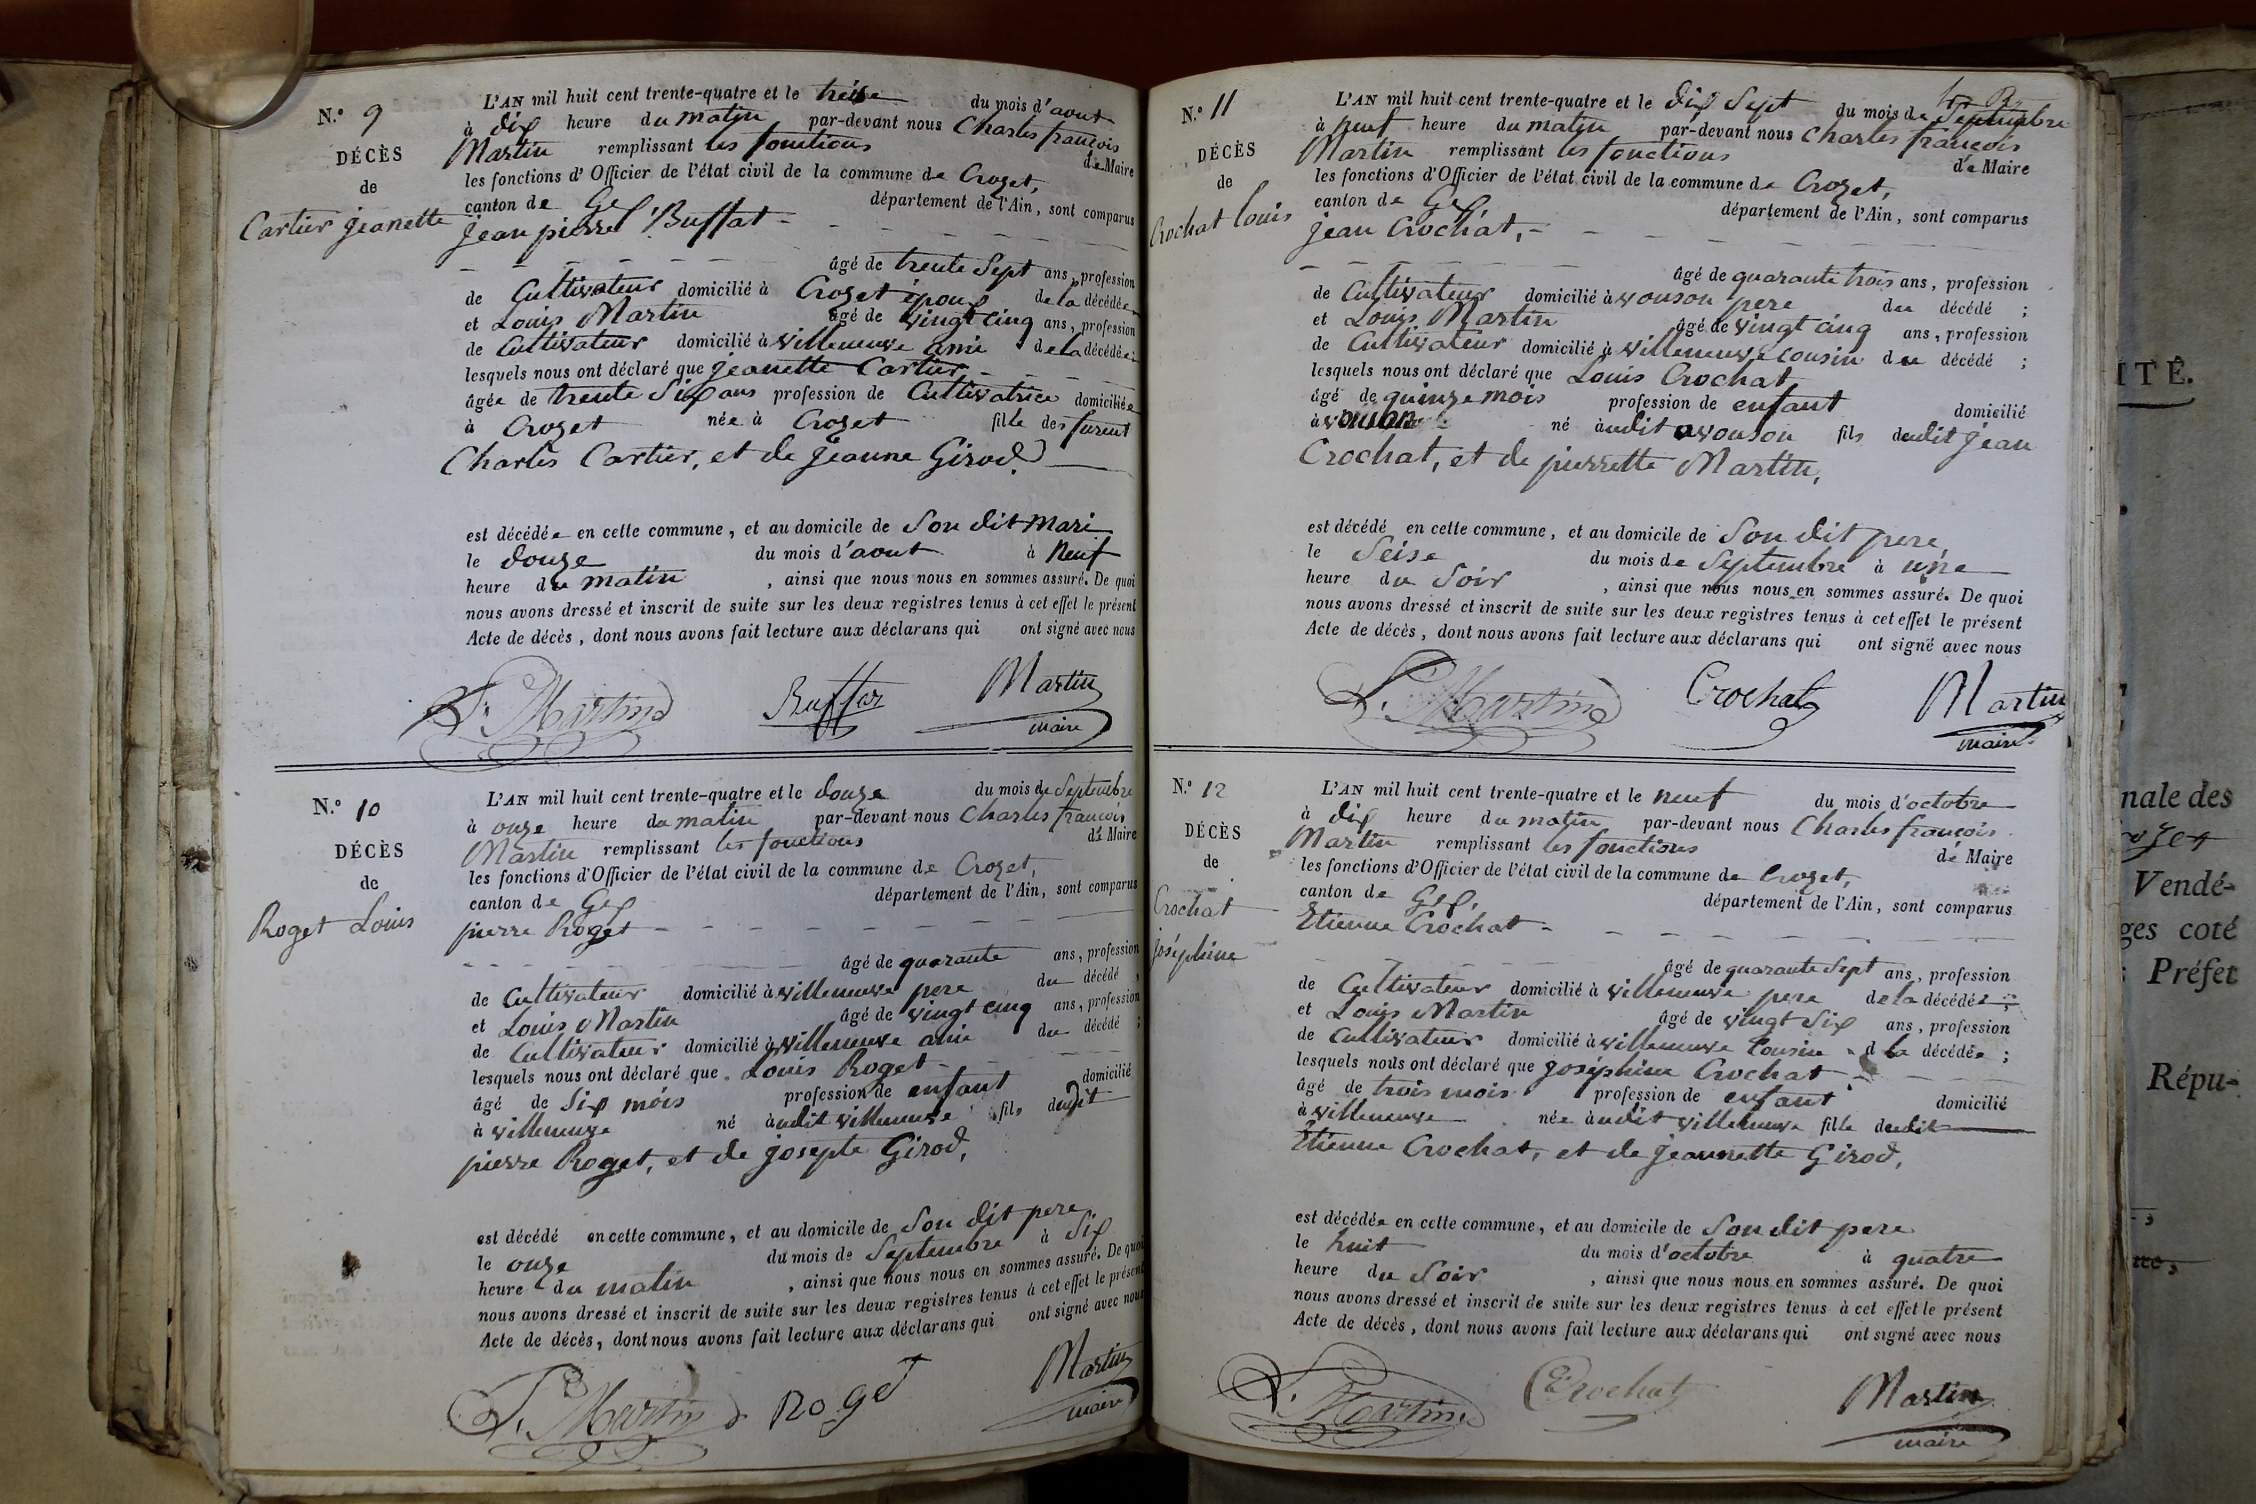 N.º 9
DÉCÈS
de
Cartier jeanette
L'AN mil huit cent trente-quatre et le treise du mois d'aout
à dix heure du matin par-devant nous Charles françois
Martin remplissant les fonctions de Maire
les fonctions d'Officier de l'état civil de la commune de Crozet,
canton de Gex département de l'Ain, sont comparus
jean pierre Buffat
âgé de trente Sept ans, profession
de Cultivateur domicilié à Crozet époux de la décédée
et Louis Martin âgé de vingt cinq ans, profession
de Cultivateur domicilié à villeneuve ami de la décédée
lesquels nous ont déclaré que jeanette Cartier,
âgée de trente Six ans profession de Cultivatrice domiciliée
à Crozet née à Crozet fille des furent
Charles Cartier, et de jeanne Girod.
est décédée en cette commune, et au domicile de Son dit mari
le douze du mois d'aout à Neuf
heure du matin, ainsi que nous nous en sommes assuré. De quoi
nous avons dressé et inscrit de suite sur les deux registres tenus à cet effet le présent
Acte de décès, dont nous avons fait lecture aux déclarans qui ont signé avec nous
L. Martin Buffat Martin
maire
N.º 10
DÉCÈS
de
Roget Louis
L'AN mil huit cent trente-quatre et le douze du mois de Septembre
à onze heure du matin par-devant nous Charles françois
Martin remplissant les fonctions de Maire
les fonctions d'Officier de l'état civil de la commune de Crozet,
canton de Gex département de l'Ain, sont comparus
pierre Roget
âgé de quarante ans, profession
de Cultivateur domicilié à villeneuve pere du décédé,
et Louis Martin âgé de vingt cinq ans, profession
de Cultivateur domicilié à villeneuve ami du décédé;
lesquels nous ont déclaré que Louis Roget
âgé de Six mois profession de enfant domicilié
à villeneuve né audit villeneuve fils dudit
pierre Roget, et de josepte Girod,
est décédé en cette commune, et au domicile de Son dit pere
le onze du mois de Septembre à Six
heure du matin, ainsi que nous nous en sommes assuré. De quoi
nous avons dressé et inscrit de suite sur les deux registres tenus à cet effet le présent
Acte de décès, dont nous avons fait lecture aux déclarans qui ont signé avec nous
L. Martin Roget Martin
maire
N.º 11
DÉCÈS
de
Crochat Louis
L'AN mil huit cent trente-quatre et le dix Sept du mois de Septembre
à neuf heure du matin par-devant nous Charles françois
Martin remplissant les fonctions de Maire
les fonctions d'Officier de l'état civil de la commune de Crozet,
canton de Gex département de l'Ain, sont comparus
jean Crochat,
âgé de quarante trois ans, profession
de Cultivateur domicilié à vouson pere du décédé;
et Louis Martin âgé de vingt cinq ans, profession
de Cultivateur domicilié à villeneuve cousin du décédé;
lesquels nous ont déclaré que Louis Crochat
âgé de quinze mois profession de enfant domicilié
à vouson né audit vouson fils dudit jean
Crochat, et de pierrette Martin,
est décédé en cette commune, et au domicile de Son dit pere
le Seise du mois de Septembre à une
heure du Soir, ainsi que nous nous en sommes assuré. De quoi
nous avons dressé et inscrit de suite sur les deux registres tenus à cet effet le présent
Acte de décès, dont nous avons fait lecture aux déclarans qui ont signé avec nous
L. Martin Crochat Martin
maire
N.º 12
DÉCÈS
de
Crochat
joséphine
L'AN mil huit cent trente-quatre et le neuf du mois d'octobre
à dix heure du matin par-devant nous Charles françois
Martin remplissant les fonctions de Maire
les fonctions d'Officier de l'état civil de la commune de Crozet,
canton de Gex, département de l'Ain, sont comparus
Etienne Crochat
âgé de quarante Sept ans, profession
de Cultivateur domicilié à villeneuve pere de la décédée;
et Louis Martin âgé de vingt Six ans, profession
de Cultivateur domicilié à villeneuve Cousin d la décédée;
lesquels nous ont déclaré que joséphine Crochat
âgé de trois mois profession de enfant domicilié
à villeneuve née audit villeneuve fille dudit
Etienne Crochat, et de jeannette Girod,
est décédée en cette commune, et au domicile de Son dit pere
le huit du mois d'octobre à quatre
heure du Soir, ainsi que nous nous en sommes assuré. De quoi
nous avons dressé et inscrit de suite sur les deux registres tenus à cet effet le présent
Acte de décès, dont nous avons fait lecture aux déclarans qui ont signé avec nous
L. Martin Crochat Martin
maire
ITÉ.
nale des
Vendé-
ges coté
Préfet
Répu-